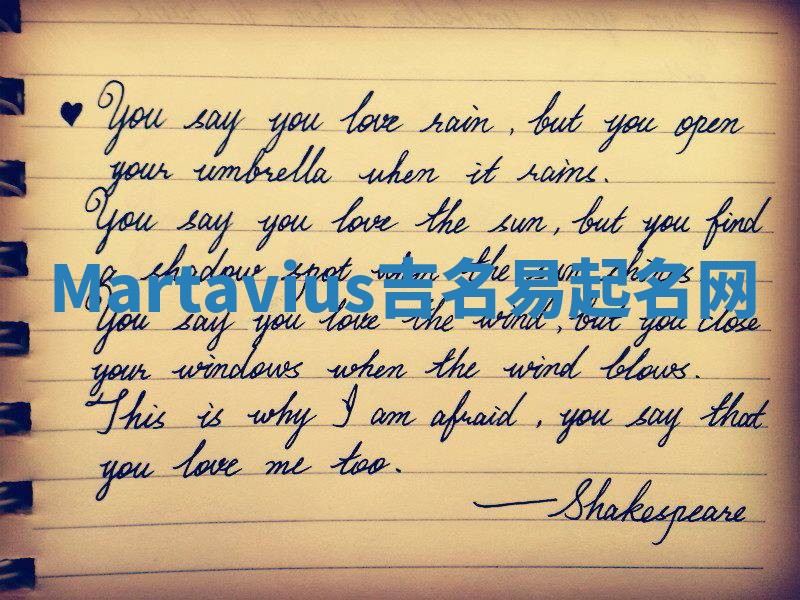 ♥ You say you love rain, but you open
your umbrella when it rains.
You say you love the sun, but you find
a shadow spot when the sun shines
Martavius吉名易起名网
You say you love the wind, but you close
your windows when the wind blows.
This is why I am afraid, you say that
you love me too.
—Shakespeare